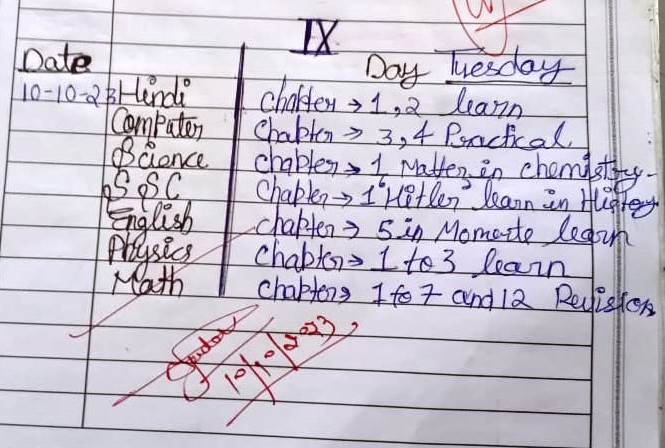 IX
Date Day Tuesday
10-10-23 Hindi Chapter → 1, 2 learn
Computer Chapter → 3, 4 Practical.
Science chapter → 1, Matter in chemistry.
S.SC Chapter → 1 "Hitler" learn in History
English chapter → 5 in Momente learn
Physics Chapter → 1 to 3 learn
Math Chapter → 1 to 7 and 12 Revision
10/10/2023